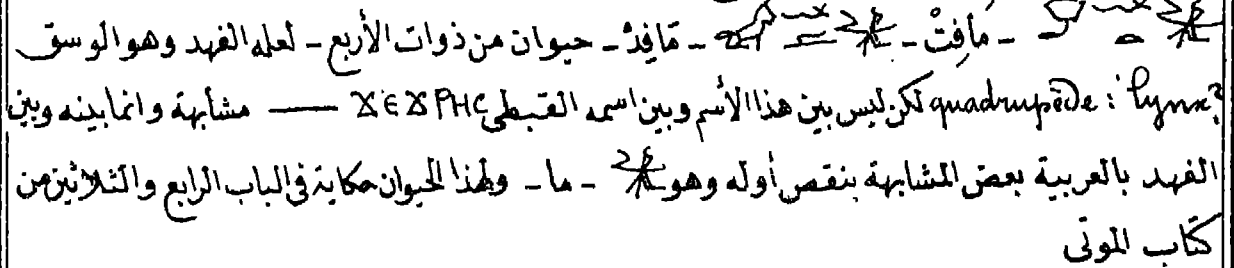 - مافِتْ - - مَافِدْ - حيوان من ذوات الأربع - لعله الفهد وهو الوسق
quadrupède : lynx? لكن ليس بين هذا الأسم وبين اسمه القبطي ⲬⲈⲬⲢⲎⲤ — مشابهة وانما بينه وبين
الفهد بالعربية بعض المشابهة بنقص أوله وهو - ما - ولهذا الحيوان حكاية في الباب الرابع والثلاثين من
كتاب الموتى